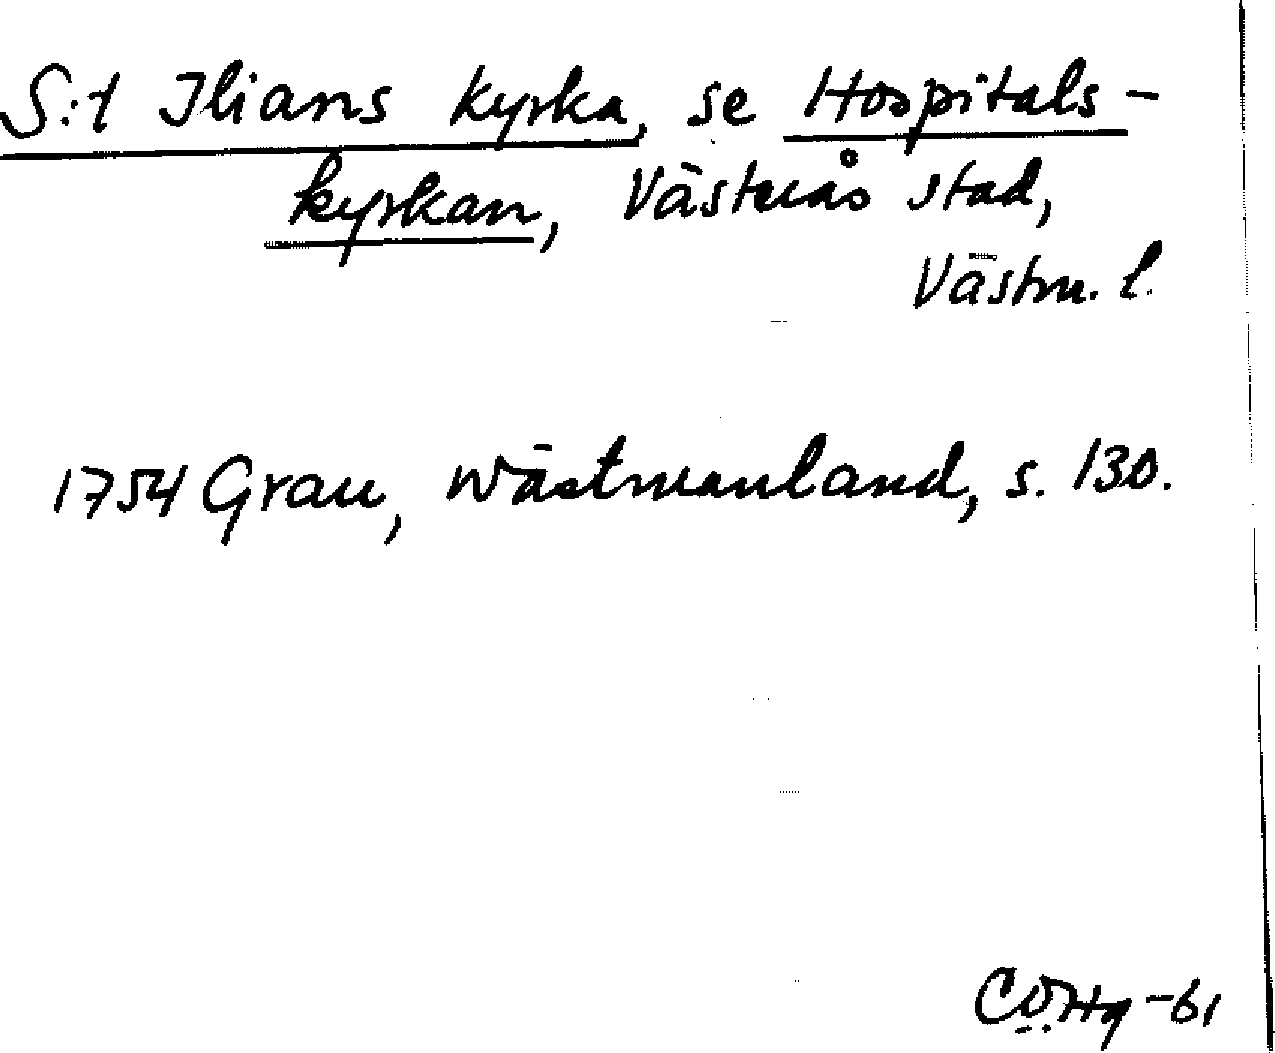 S:t Ilians kyrka, se Hospitals-
kyrkan, Västerås stad,
Västm. l.
1754 Grau, Wästmanland, s. 130.
-61